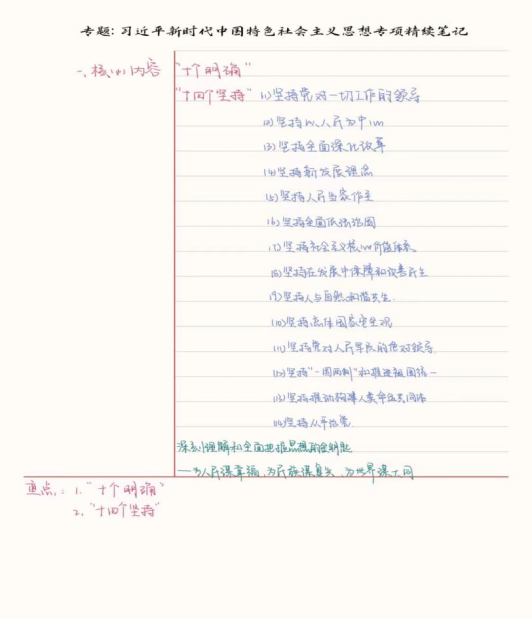 专题: 习近平新时代中国特色社会主义思想专项精续笔记
一、核心内容 "十个明确"
"十四个坚持" (1)坚持党对一切工作的领导
(2)坚持以人民为中心
(3)坚持全面深化改革
(4)坚持新发展理念
(5)坚持人民当家作主
(6)坚持全面依法治国
(7)坚持社会主义核心价值体系。
(8)坚持在发展中保障和改善民生
(9)坚持人与自然和谐共生.
(10)坚持总体国家安全观
(11)坚持党对人民军队的绝对领导.
(12)坚持"一国两制"和推进祖国统一
(13)坚持推动构建人类命运共同体
(14)坚持从严治党.
深刻理解和全面把握思想的金钥匙
——为人民谋幸福、为民族谋复兴、为世界谋大同
重点: 1. "十个明确"
2. "十四个坚持"